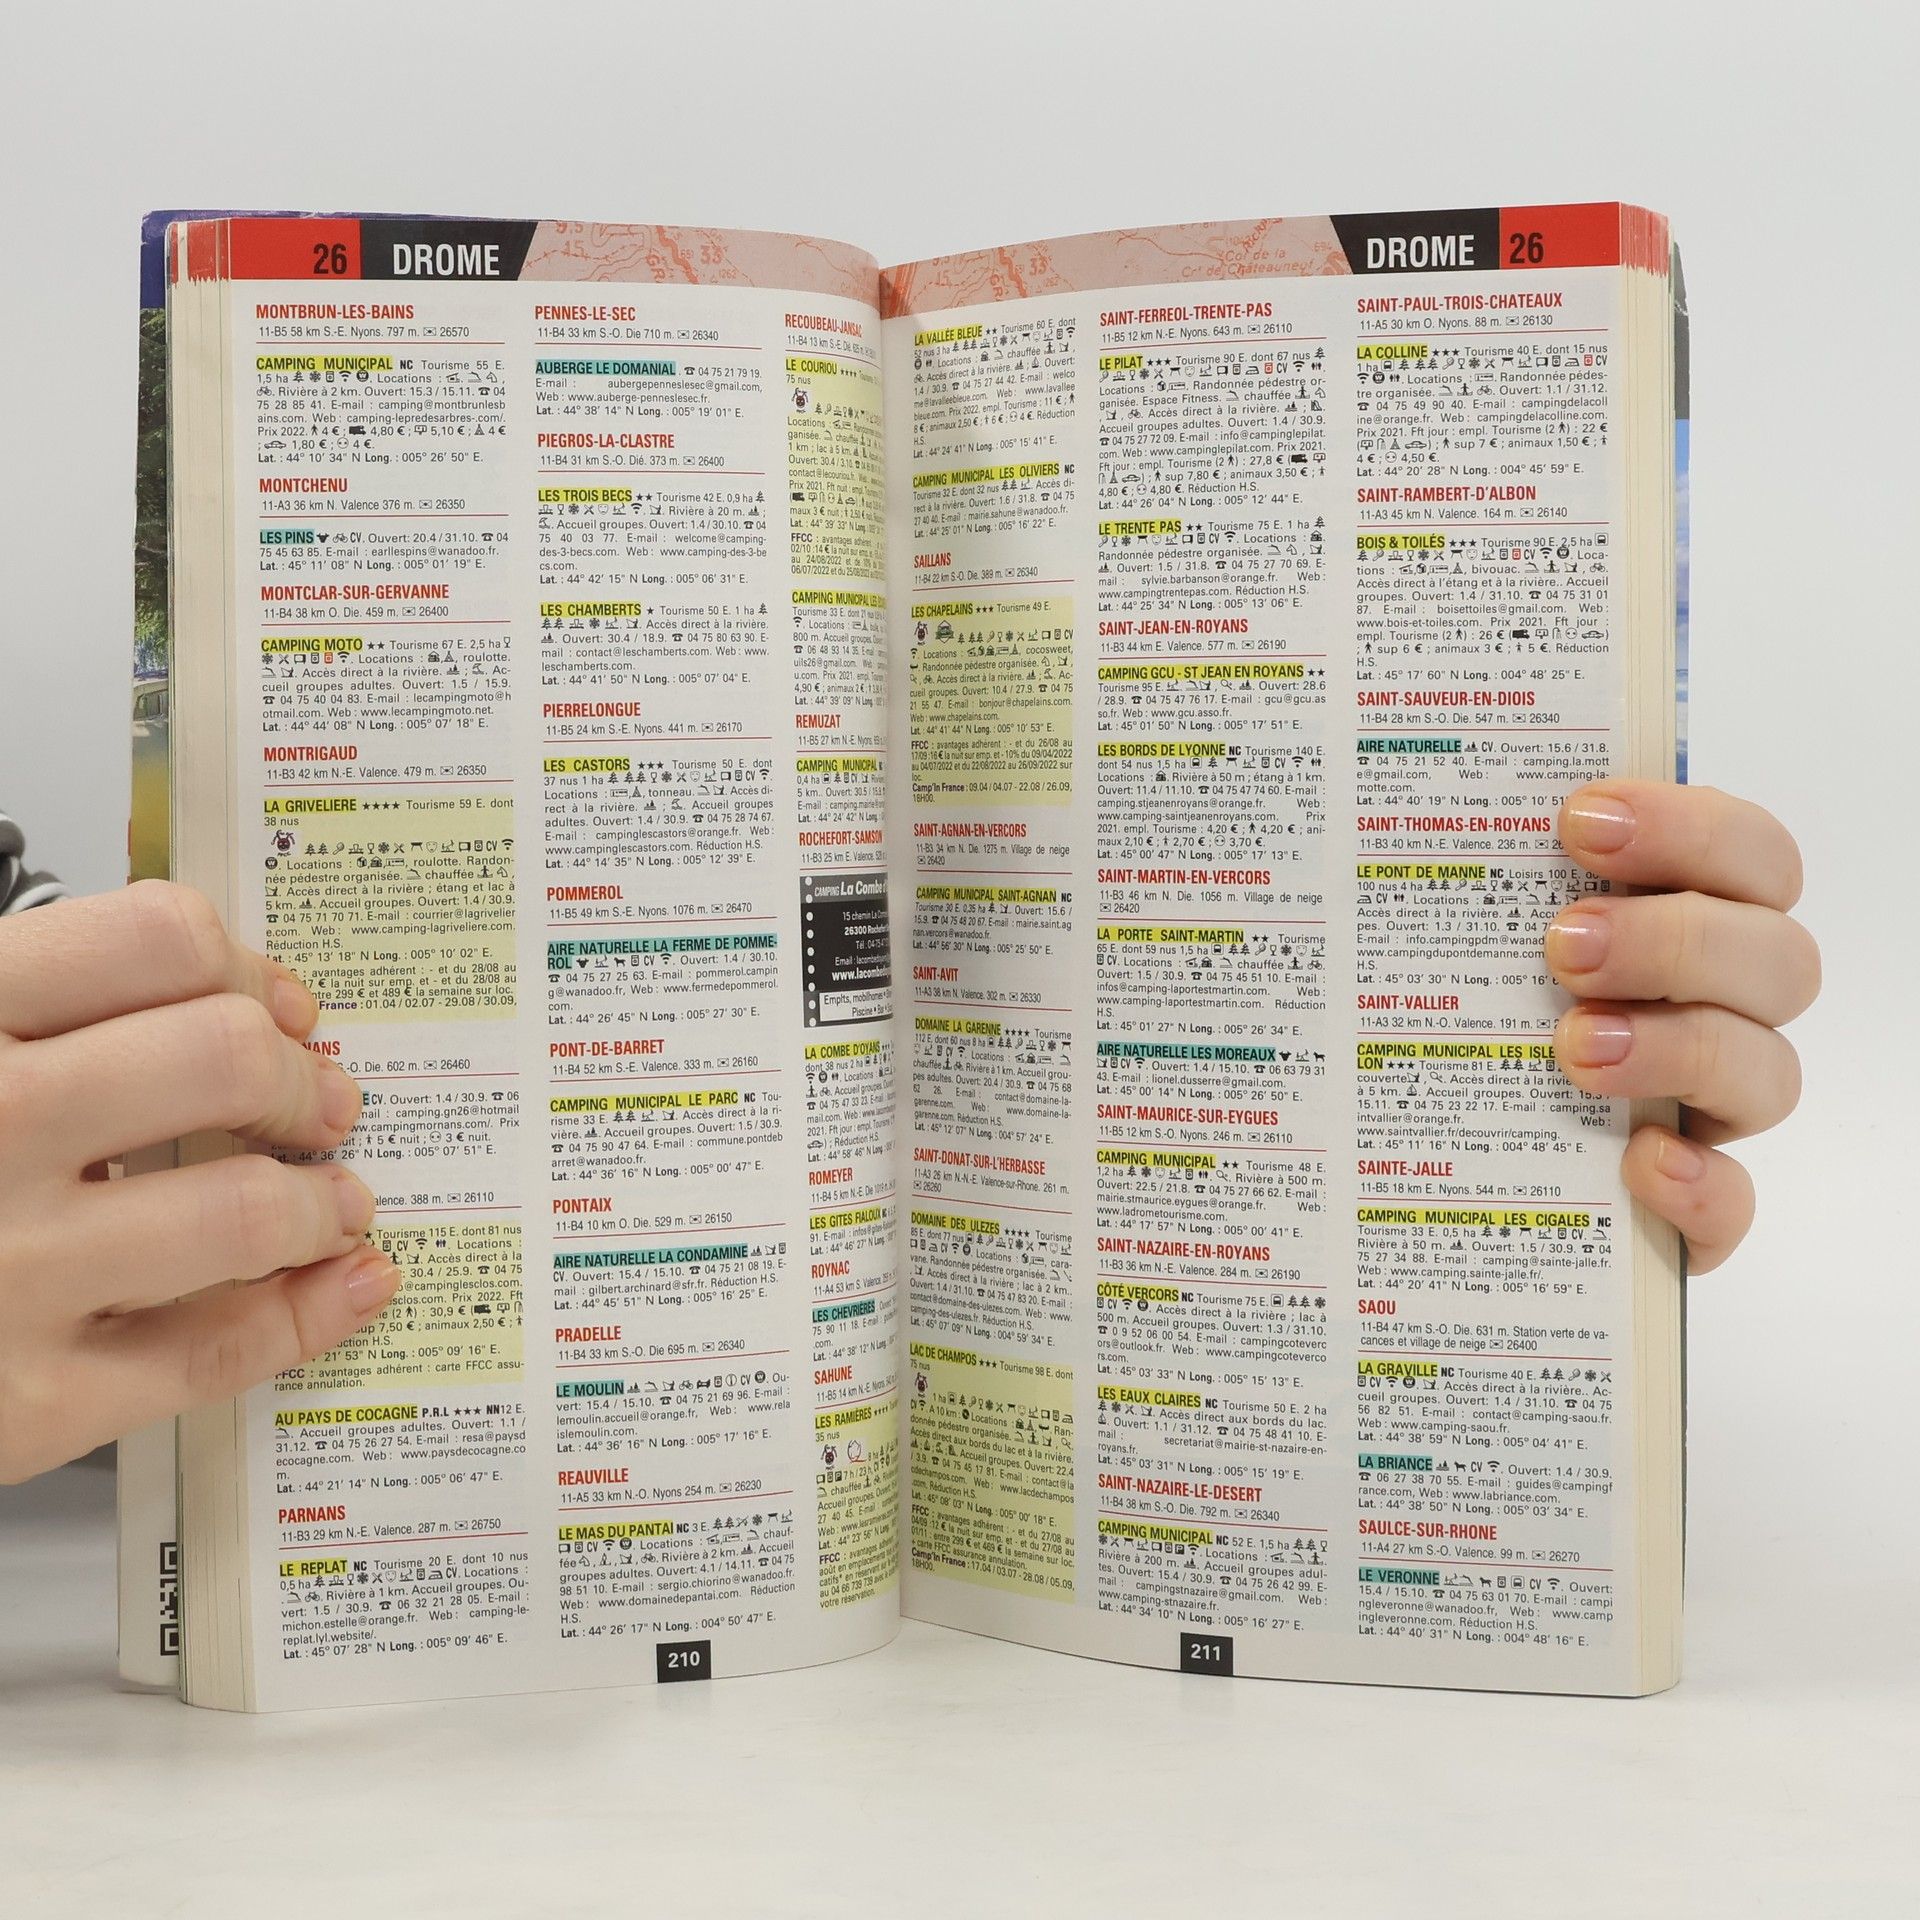 26 DROME
MONTBRUN-LES-BAINS
11-B5 58 km S.-E. Nyons. 797 m. ✉ 26570
CAMPING MUNICIPAL NC Tourisme 55 E.
1,5 ha Locations :
Rivière à 2 km. Ouvert: 15.3 / 15.11. ☎ 04
75 28 85 41. E-mail : camping@montbrunlesb
ains.com. Web : camping-lepredesarbres-.com/.
Prix 2022. 4 € ; 4,80 € ; 5,10 € ; 4 €
; 1,80 € ; 4 €.
Lat. : 44° 10' 34" N Long. : 005° 26' 50" E.
MONTCHENU
11-A3 36 km N. Valence 376 m. ✉ 26350
LES PINS CV. Ouvert: 20.4 / 31.10. ☎ 04
75 45 63 85. E-mail : earllespins@wanadoo.fr.
Lat. : 45° 11' 08" N Long. : 005° 01' 19" E.
MONTCLAR-SUR-GERVANNE
11-B4 38 km O. Die. 459 m. ✉ 26400
CAMPING MOTO ★★ Tourisme 67 E. 2,5 ha
Locations : , roulotte.
Accès direct à la rivière. Ac-
cueil groupes adultes. Ouvert: 1.5 / 15.9.
☎ 04 75 40 04 83. E-mail : lecampingmoto@h
otmail.com. Web : www.lecampingmoto.net.
Lat. : 44° 44' 08" N Long. : 005° 07' 18" E.
MONTRIGAUD
11-B3 42 km N.-E. Valence. 479 m. ✉ 26350
LA GRIVELIERE ★★★★ Tourisme 59 E. dont
38 nus
Locations : , roulotte. Randon-
née pédestre organisée. chauffée
Accès direct à la rivière ; étang et lac à
5 km. Accueil groupes. Ouvert: 1.4 / 30.9.
☎ 04 75 71 70 71. E-mail : courrier@lagrivelier
e.com. Web : www.camping-lagriveliere.com.
Réduction H.S.
Lat. : 45° 13' 18" N Long. : 005° 10' 02" E.
: avantages adhérent : - et du 28/08 au
€ la nuit sur emp. et - et du 28/08 au
entre 299 € et 489 € la semaine sur loc.
France : 01.04 / 02.07 - 29.08 / 30.09,
O. Die. 602 m. ✉ 26460
CV. Ouvert: 1.4 / 30.9. ☎ 06
camping.gn26@hotmail
campingmornans.com/. Prix
nuit ; 5 € nuit ; 3 € nuit.
44° 36' 26" N Long. : 005° 07' 51" E.
388 m. ✉ 26110
Tourisme 115 E. dont 81 nus
CV Locations :
Accès direct à la
30.4 / 25.9. ☎ 04 75
campinglesclos.com.
Prix 2022. Fft
: 30,9 €
7,50 € ; animaux 2,50 € ;
Réduction H.S.
21' 53" N Long. : 005° 09' 16" E.
FFCC : avantages adhérent : carte FFCC assu-
rance annulation.
AU PAYS DE COCAGNE P.R.L ★★★ NN12 E.
Accueil groupes adultes. Ouvert: 1.1 /
31.12. ☎ 04 75 26 27 54. E-mail : resa@paysd
ecocagne.com. Web : www.paysdecocagne.co
m.
Lat. : 44° 21' 14" N Long. : 005° 06' 47" E.
PARNANS
11-B3 29 km N.-E. Valence. 287 m. ✉ 26750
LE REPLAT NC Tourisme 20 E. dont 10 nus
0,5 ha CV. Locations :
Rivière à 1 km. Accueil groupes. Ou-
vert: 1.5 / 30.9. ☎ 06 32 21 28 05. E-mail :
michon.estelle@orange.fr. Web : camping-le-
replat.lyl.website/.
Lat. : 45° 07' 28" N Long. : 005° 09' 46" E.
PENNES-LE-SEC
11-B4 33 km S.-O. Die 710 m. ✉ 26340
AUBERGE LE DOMANIAL . ☎ 04 75 21 79 19.
E-mail : aubergepenneslesec@gmail.com,
Web : www.auberge-penneslesec.fr.
Lat. : 44° 38' 14" N Long. : 005° 19' 01" E.
PIEGROS-LA-CLASTRE
11-B4 31 km S.-O. Dié. 373 m. ✉ 26400
LES TROIS BECS ★★ Tourisme 42 E. 0,9 ha
Rivière à 20 m. ;
Accueil groupes. Ouvert: 1.4 / 30.10. ☎ 04
75 40 03 77. E-mail : welcome@camping-
des-3-becs.com. Web : www.camping-des-3-be
cs.com.
Lat. : 44° 42' 15" N Long. : 005° 06' 31" E.
LES CHAMBERTS ★ Tourisme 50 E. 1 ha
Accès direct à la rivière.
Ouvert: 30.4 / 18.9. ☎ 04 75 80 63 90. E-
mail : contact@leschamberts.com. Web : www.
leschamberts.com.
Lat. : 44° 41' 50" N Long. : 005° 07' 04" E.
PIERRELONGUE
11-B5 24 km S.-E. Nyons. 441 m. ✉ 26170
LES CASTORS ★★★ Tourisme 50 E. dont
37 nus 1 ha CV
Locations : , tonneau. Accès di-
rect à la rivière. ; Accueil groupes
adultes. Ouvert: 1.4 / 30.9. ☎ 04 75 28 74 67.
E-mail : campinglescastors@orange.fr. Web :
www.campinglescastors.com. Réduction H.S.
Lat. : 44° 14' 35" N Long. : 005° 12' 39" E.
POMMEROL
11-B5 49 km S.-E. Nyons. 1076 m. ✉ 26470
AIRE NATURELLE LA FERME DE POMME-
ROL CV Ouvert: 1.4 / 30.10.
☎ 04 75 27 25 63. E-mail : pommerol.campin
g@wanadoo.fr, Web : www.fermedepommerol.
com.
Lat. : 44° 26' 45" N Long. : 005° 27' 30" E.
PONT-DE-BARRET
11-B4 52 km S.-E. Valence. 333 m. ✉ 26160
CAMPING MUNICIPAL LE PARC NC Tou-
risme 33 E. Accès direct à la ri-
vière. Accueil groupes. Ouvert: 1.5 / 30.9.
☎ 04 75 90 47 64. E-mail : commune.pontdeb
arret@wanadoo.fr.
Lat. : 44° 36' 16" N Long. : 005° 00' 47" E.
PONTAIX
11-B4 10 km O. Die. 529 m. ✉ 26150
AIRE NATURELLE LA CONDAMINE
CV. Ouvert: 15.4 / 15.10. ☎ 04 75 21 08 19. E-
mail : gilbert.archinard@sfr.fr. Réduction H.S.
Lat. : 44° 45' 51" N Long. : 005° 16' 25" E.
PRADELLE
11-B4 33 km S.-O. Die 695 m. ✉ 26340
LE MOULIN CV Ou-
vert: 15.4 / 15.10. ☎ 04 75 21 69 96. E-mail :
lemoulin.accueil@orange.fr, Web : www.rela
islemoulin.com.
Lat. : 44° 36' 16" N Long. : 005° 17' 16" E.
REAUVILLE
11-A5 33 km N.-O. Nyons 254 m. ✉ 26230
LE MAS DU PANTAI NC 3 E.
CV chauf-
fée Rivière à 2 km. Accueil
groupes adultes. Ouvert: 4.1 / 14.11. ☎ 04 75
98 51 10. E-mail : sergio.chiorino@wanadoo.fr.
Web : www.domainedepantai.com. Réduction
H.S.
Lat. : 44° 26' 17" N Long. : 004° 50' 47" E.
RECOUBEAU-JANSAC
11-B4 13 km S.-E. Die.
LE COURIOU ★★★★
75 nus
CAMPING MUNICIPAL LES
REMUZAT
11-B5 27 km N.-E. Nyons
CAMPING MUNICIPAL
ROCHEFORT-SAMSON
11-B3 25 km E. Valence.
CAMPING La Combe
15 chemin La
26300 Rochefort
www.lacombe
Emplts, mobilhomes
Piscine • Bar
LA COMBE D'OYANS
ROMEYER
11-B4 5 km N.-E. Die
LES GITES FIALOUX
ROYNAC
11-A4 53 km S. Valence.
LES CHEVRIÈRES
SAHUNE
11-B5 14 km N.-E. Nyons.
LES RAMIÈRES ★★★★
35 nus
210
DROME 26
LA VALLÉE BLEUE ★★ Tourisme 60 E. dont
52 nus 3 ha
Locations : chauffée
Accès direct à la rivière. Ouvert:
1.4 / 30.9. ☎ 04 75 27 44 42. E-mail : welco
me@lavalleebleue.com. Web : www.lavallee
bleue.com. Prix 2022. empl. Tourisme : 11 € ;
8 € ; animaux 2,50 € ; 6 € ; 4 €. Réduction
H.S.
Lat. : 44° 24' 41" N Long. : 005° 15' 41" E.
CAMPING MUNICIPAL LES OLIVIERS NC
Tourisme 32 E. dont 32 nus Accès di-
rect à la rivière. Ouvert: 1.6 / 31.8. ☎ 04 75
27 40 40. E-mail : mairie.sahune@wanadoo.fr.
Lat. : 44° 25' 01" N Long. : 005° 16' 22" E.
SAILLANS
11-B4 22 km S.-O. Die. 389 m. ✉ 26340
LES CHAPELAINS ★★★ Tourisme 49 E.
CV
Locations : , cocosweet,
Randonnée pédestre organisée.
Accès direct à la rivière. Ac-
cueil groupes. Ouvert: 10.4 / 27.9. ☎ 04 75
21 55 47. E-mail : bonjour@chapelains.com.
Web : www.chapelains.com.
Lat. : 44° 41' 44" N Long. : 005° 10' 53" E.
FFCC : avantages adhérent : - et du 26/08 au
17/09 : 16 € la nuit sur emp. et - 10% du 09/04/2022
au 04/07/2022 et du 22/08/2022 au 26/09/2022 sur
loc.
Camp'In France : 09.04 / 04.07 - 22.08 / 26.09,
18H00.
SAINT-AGNAN-EN-VERCORS
11-B3 34 km N. Die. 1275 m. Village de neige
✉ 26420
CAMPING MUNICIPAL SAINT-AGNAN NC
Tourisme 30 E. 0,35 ha Ouvert: 15.6 /
15.9. ☎ 04 75 48 20 67. E-mail : mairie.saint.ag
nan.vercors@wanadoo.fr.
Lat. : 44° 56' 30" N Long. : 005° 25' 50" E.
SAINT-AVIT
11-A3 38 km N. Valence. 302 m. ✉ 26330
DOMAINE LA GARENNE ★★★★ Tourisme
112 E. dont 60 nus 8 ha
CV Locations :
chauffée Rivière à 1 km. Accueil grou-
pes adultes. Ouvert: 20.4 / 30.9. ☎ 04 75 68
62 26. E-mail : contact@domaine-la-
garenne.com. Web : www.domaine-la-
garenne.com. Réduction H.S.
Lat. : 45° 12' 07" N Long. : 004° 57' 24" E.
SAINT-DONAT-SUR-L'HERBASSE
11-A3 26 km N.-N.-E. Valence-sur-Rhone. 261 m.
✉ 26260
DOMAINE DES ULEZES ★★★★ Tourisme
85 E. dont 77 nus
CV Locations : , cara-
vane. Randonnée pédestre organisée.
Accès direct à la rivière ; lac à 2 km.
Ouvert: 1.4 / 31.10. ☎ 04 75 47 83 20. E-mail :
contact@domaine-des-ulezes.com. Web : www.
camping-des-ulezes.fr. Réduction H.S.
Lat. : 45° 07' 09" N Long. : 004° 59' 34" E.
LAC DE CHAMPOS ★★★ Tourisme 98 E. dont
75 nus
1 ha
CV A 10 km : Locations : Ran-
donnée pédestre organisée.
Accès direct aux bords du lac et à la rivière.
Accueil groupes. Ouvert: 22.4
/ 3.9. ☎ 04 75 45 17 81. E-mail : contact@la
cdechampos.com. Web : www.lacdechampos
.com.
Lat. : 45° 08' 03" N Long. : 005° 00' 18" E.
FFCC : avantages adhérent : - et du 27/08 au
04/09 : 12 € la nuit sur emp. et - et du 27/08 au
01/11 : entre 299 € et 469 € la semaine sur loc.
+ carte FFCC assurance annulation.
Camp'In France : 17.04 / 03.07 - 28.08 / 05.09,
18H00.
SAINT-FERREOL-TRENTE-PAS
11-B5 12 km N.-E. Nyons. 643 m. ✉ 26110
LE PILAT ★★★ Tourisme 90 E. dont 67 nus
CV
Locations : Randonnée pédestre or-
ganisée. Espace Fitness. chauffée
Accès direct à la rivière. ;
Accueil groupes adultes. Ouvert: 1.4 / 30.9.
☎ 04 75 27 72 09. E-mail : info@campinglepilat.
com. Web : www.campinglepilat.com. Prix 2021.
Fft jour : empl. Tourisme (2 ) : 27,8 €
; sup 7,80 € ; animaux 3,50 € ;
4,80 € ; 4,80 €. Réduction H.S.
Lat. : 44° 26' 04" N Long. : 005° 12' 44" E.
LE TRENTE PAS ★★ Tourisme 75 E. 1 ha
CV Locations :
Randonnée pédestre organisée.
Ouvert: 1.5 / 31.8. ☎ 04 75 27 70 69. E-
mail : sylvie.barbanson@orange.fr. Web :
www.campingtrentepas.com. Réduction H.S.
Lat. : 44° 25' 34" N Long. : 005° 13' 06" E.
SAINT-JEAN-EN-ROYANS
11-B3 44 km E. Valence. 577 m. ✉ 26190
CAMPING GCU - ST JEAN EN ROYANS ★★
Tourisme 95 E. Ouvert: 28.6
/ 28.9. ☎ 04 75 47 76 17. E-mail : gcu@gcu.as
so.fr. Web : www.gcu.asso.fr.
Lat. : 45° 01' 50" N Long. : 005° 17' 51" E.
LES BORDS DE LYONNE NC Tourisme 140 E.
dont 54 nus 1,5 ha CV
Locations : Rivière à 50 m ; étang à 1 km.
Ouvert: 11.4 / 11.10. ☎ 04 75 47 74 60. E-mail :
camping.stjeanenroyans@orange.fr. Web :
www.camping-saintjeanenroyans.com. Prix
2021. empl. Tourisme : 4,20 € ; 4,20 € ; ani-
maux 2,10 € ; 2,70 € ; 3,70 €.
Lat. : 45° 00' 47" N Long. : 005° 17' 13" E.
SAINT-MARTIN-EN-VERCORS
11-B3 46 km N. Die. 1056 m. Village de neige
✉ 26420
LA PORTE SAINT-MARTIN ★★ Tourisme
65 E. dont 59 nus 1,5 ha
CV. Locations : chauffée
Ouvert: 1.5 / 30.9. ☎ 04 75 45 51 10. E-mail :
infos@camping-laportestmartin.com. Web :
www.camping-laportestmartin.com. Réduction
H.S.
Lat. : 45° 01' 27" N Long. : 005° 26' 34" E.
AIRE NATURELLE LES MOREAUX
CV Ouvert: 1.4 / 15.10. ☎ 06 63 79 31
43. E-mail : lionel.dusserre@gmail.com.
Lat. : 45° 00' 14" N Long. : 005° 26' 50" E.
SAINT-MAURICE-SUR-EYGUES
11-B5 12 km S.-O. Nyons. 246 m. ✉ 26110
CAMPING MUNICIPAL ★★ Tourisme 48 E.
1,2 ha Rivière à 500 m.
Ouvert: 22.5 / 21.8. ☎ 04 75 27 66 62. E-mail :
mairie.stmaurice.eygues@orange.fr. Web :
www.ladrometourisme.com.
Lat. : 44° 17' 57" N Long. : 005° 00' 41" E.
SAINT-NAZAIRE-EN-ROYANS
11-B3 36 km N.-E. Valence. 284 m. ✉ 26190
CÔTÉ VERCORS NC Tourisme 75 E.
CV Accès direct à la rivière ; lac à
500 m. Accueil groupes. Ouvert: 1.3 / 31.10.
☎ 0 9 52 06 00 54. E-mail : campingcoteverc
ors@outlook.fr. Web : www.campingcoteverco
rs.com.
Lat. : 45° 03' 33" N Long. : 005° 15' 13" E.
LES EAUX CLAIRES NC Tourisme 50 E. 2 ha
Accès direct aux bords du lac.
Ouvert: 1.1 / 31.12. ☎ 04 75 48 41 10. E-
mail : secretariat@mairie-st-nazaire-en-
royans.fr.
Lat. : 45° 03' 31" N Long. : 005° 15' 19" E.
SAINT-NAZAIRE-LE-DESERT
11-B4 38 km S.-O. Die. 792 m. ✉ 26340
CAMPING MUNICIPAL NC 52 E. 1,5 ha
Locations :
Rivière à 200 m. Accueil groupes adul-
tes. Ouvert: 15.4 / 30.9. ☎ 04 75 26 42 99. E-
mail : campingstnazaire@gmail.com. Web :
www.camping-stnazaire.fr.
Lat. : 44° 34' 10" N Long. : 005° 16' 27" E.
SAINT-PAUL-TROIS-CHATEAUX
11-A5 30 km O. Nyons. 88 m. ✉ 26130
LA COLLINE ★★★ Tourisme 40 E. dont 15 nus
1 ha CV
Locations : Randonnée pédes-
tre organisée. Ouvert: 1.1 / 31.12.
☎ 04 75 49 90 40. E-mail : campingdelacoll
ine@orange.fr. Web : campingdelacolline.com.
Prix 2021. Fft jour : empl. Tourisme (2 ) : 22 €
; sup 7 € ; animaux 1,50 € ;
4 € ; 4,50 €.
Lat. : 44° 20' 28" N Long. : 004° 45' 59" E.
SAINT-RAMBERT-D'ALBON
11-A3 45 km N. Valence. 164 m. ✉ 26140
BOIS & TOILÉS ★★★ Tourisme 90 E. 2,5 ha
CV Loca-
tions : , bivouac.
Accès direct à l'étang et à la rivière.. Accueil
groupes. Ouvert: 1.4 / 31.10. ☎ 04 75 31 01
87. E-mail : boisettoiles@gmail.com. Web :
www.bois-et-toiles.com. Prix 2021. Fft jour :
empl. Tourisme (2 ) : 26 €
; sup 6 € ; animaux 3 € ; 5 €. Réduction
H.S.
Lat. : 45° 17' 60" N Long. : 004° 48' 25" E.
SAINT-SAUVEUR-EN-DIOIS
11-B4 28 km S.-O. Die. 547 m. ✉ 26340
AIRE NATURELLE CV. Ouvert: 15.6 / 31.8.
☎ 04 75 21 52 40. E-mail : camping.la.mott
e@gmail.com, Web : www.camping-la-
motte.com.
Lat. : 44° 40' 19" N Long. : 005° 10' 51
SAINT-THOMAS-EN-ROYANS
11-B3 40 km N.-E. Valence. 236 m. ✉
LE PONT DE MANNE NC Loisirs 100 E.
100 nus 4 ha
CV Locations :
Accès direct à la rivière. Accu
pes. Ouvert: 1.3 / 31.10. ☎ 04
E-mail : info.campingpdm@wanad
www.campingdupontdemanne.com
H.S.
Lat. : 45° 03' 30" N Long. : 005° 16'
SAINT-VALLIER
11-A3 32 km N.-O. Valence. 191 m. ✉
CAMPING MUNICIPAL LES ISLE
LON ★★★ Tourisme 81 E.
couverte Accès direct à la riviè
à 5 km. Accueil groupes. Ouvert: 15.3 /
15.11. ☎ 04 75 23 22 17. E-mail : camping.sa
intvallier@orange.fr. Web :
www.saintvallier.fr/decouvrir/camping.
Lat. : 45° 11' 16" N Long. : 004° 48' 45" E.
SAINTE-JALLE
11-B5 18 km E. Nyons. 544 m. ✉ 26110
CAMPING MUNICIPAL LES CIGALES NC
Tourisme 33 E. 0,5 ha CV.
Rivière à 50 m. Ouvert: 1.5 / 30.9. ☎ 04
75 27 34 88. E-mail : camping@sainte-jalle.fr.
Web : www.camping.sainte-jalle.fr/.
Lat. : 44° 20' 41" N Long. : 005° 16' 59" E.
SAOU
11-B4 47 km S.-O. Die. 631 m. Station verte de va-
cances et village de neige ✉ 26400
LA GRAVILLE NC Tourisme 40 E.
CV Accès direct à la rivière.. Ac-
cueil groupes. Ouvert: 1.4 / 31.10. ☎ 04 75
56 82 51. E-mail : contact@camping-saou.fr.
Web : www.camping-saou.fr.
Lat. : 44° 38' 59" N Long. : 005° 04' 41" E.
LA BRIANCE CV Ouvert: 1.4 / 30.9.
☎ 06 27 38 70 55. E-mail : guides@campingf
rance.com, Web : www.labriance.com.
Lat. : 44° 38' 50" N Long. : 005° 03' 34" E.
SAULCE-SUR-RHONE
11-A4 27 km S.-O. Valence. 99 m. ✉ 26270
LE VERONNE CV Ouvert:
15.4 / 15.10. ☎ 04 75 63 01 70. E-mail : campi
ngleveronne@wanadoo.fr, Web : www.camp
ingleveronne.com. Réduction H.S.
Lat. : 44° 40' 31" N Long. : 004° 48' 16" E.
211